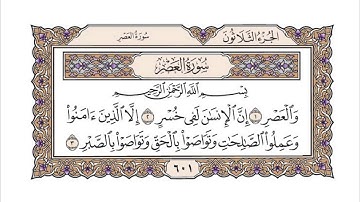 الجزء الثلاثون سورة العصر
سورة العصر
بسم الله الرحمن الرحيم
وَٱلۡعَصۡرِ ١ إِنَّ ٱلۡإِنسَٰنَ لَفِي خُسۡرٍ ٢ إِلَّا ٱلَّذِينَ ءَامَنُواْ
وَعَمِلُواْ ٱلصَّٰلِحَٰتِ وَتَوَاصَوۡاْ بِٱلۡحَقِّ وَتَوَاصَوۡاْ بِٱلصَّبۡرِ ٣
٦٠١